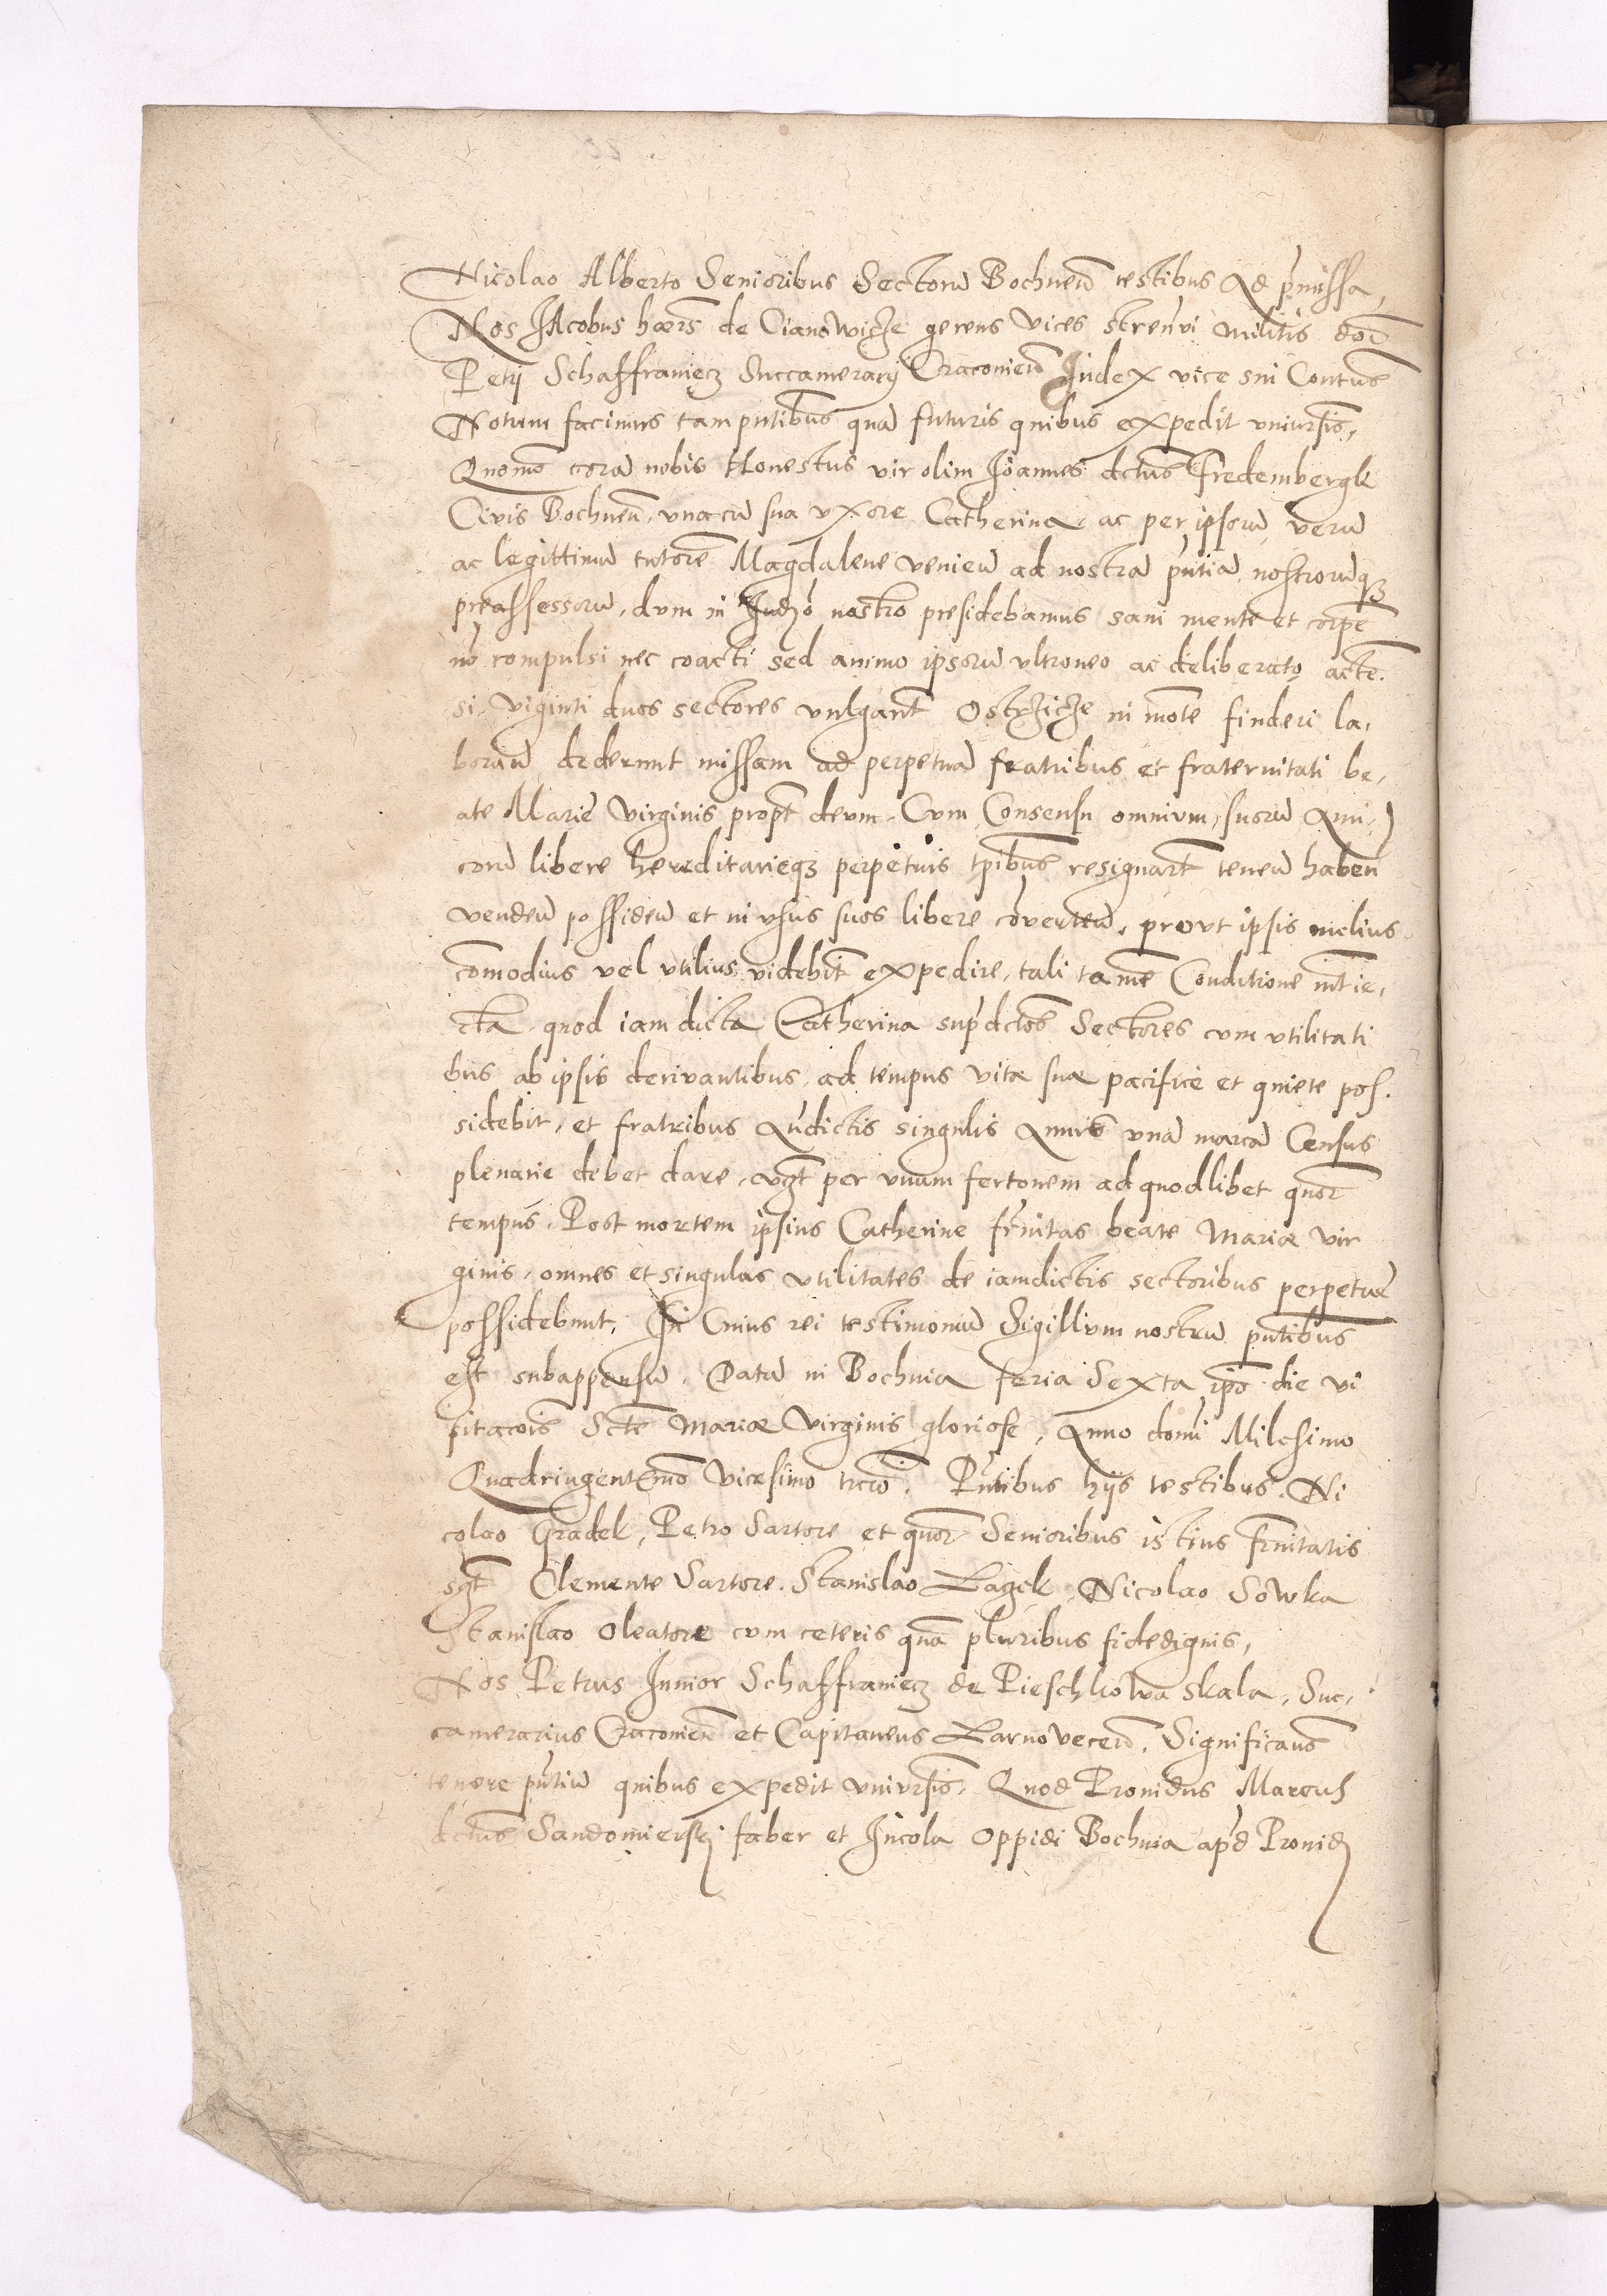 Nicolao Alberto Senioribus Sectorū Bochneñ testibus Ad pmissa,
Nos IAcobus hæres de Cianowicze gerens vices strenvi militis doi
Petri Schaffraniecz Succamerarij Cracovieñ Iudex vice sui Contus
Notum facimus tam pntibus quā futuris quibus expedit vniursis,
Quomō corā nobis Honestus vir olim Ioannes dctus Fredembergk
Civis Bochneñ, vnacū sua vxore Catherina ac per ipsorū verū
ac legittimū tutorē Magdalene venieñ ad nostrā pntiā nostrorūqȝ
preassessorū, dvm in Iudꝫo nostro presidebamus sani mente et corpe
nō compulsi nec coacti sed animo ipsorū vltroneo ac deliberato acte.
si viginti duos sectores vulgarit Ostrzicze in mōte finderi la,
borañ dederunt missam ad perpetuā fratribus et fraternitati be,
ate Marie Virginis propt devm. Cvm Consensu omnivm suorū Ami,
corū libere hereditarieqȝ perpetuis tpibus resignarūt teneñ habeñ
vendeñ possideñ et in vsus suos libere cōverteñ, provt ipsis melius
cōmodius vel vtilius videbit expedire, tali tamē Conditione int ie,
cta quod iam dicta Catherina supdctos Sectores cvm vtilitati
bus ab ipsis derivantibus ad tempus vitæ suæ pacifice et quiete pos.
sidebit, et fratribus Andictis singulis Annis vnā marcā Census
plenarie debet dare, vgt per vnam fertonem ad quodlibet quor
tempus. Post mortem ipsius Catherine frnitas beate Mariæ vir
ginis, omnes et singulas vtilitates de iamdictis sectoribus perpetue
possidebunt, In Cuius rei testimoniū Sigillvm nostrū pntibus
est subappensū. Datū in Bochnia feria Sexta ipo die vi
sitacois Scte Mariæ Virginis gloriose, Anno domi Milesimo
Quadringentesimo Vicesimo trcio. Pntibus hijs testibus. Ni
colao Gradek, Petro Sartore et quor Senioribus istius frnitatis
sgt Clemente Sartore. Stanislao Lagek, Nicolao Sowka
Stanislao Oleatore cvm ceteris quā pluribus fidedignis,
Nos Petrus Iunior Schaffraniecz de Pieschkowa skala, Suc,
camerarius Cracovieñ et Capitaneus Larnoveceñ. Significans
tenore pntiū quibus expedit vniursis. Quod Prouidus Marcus
dctus Sandomiersky faber et Incola Oppidi Bochnia apd Prouid